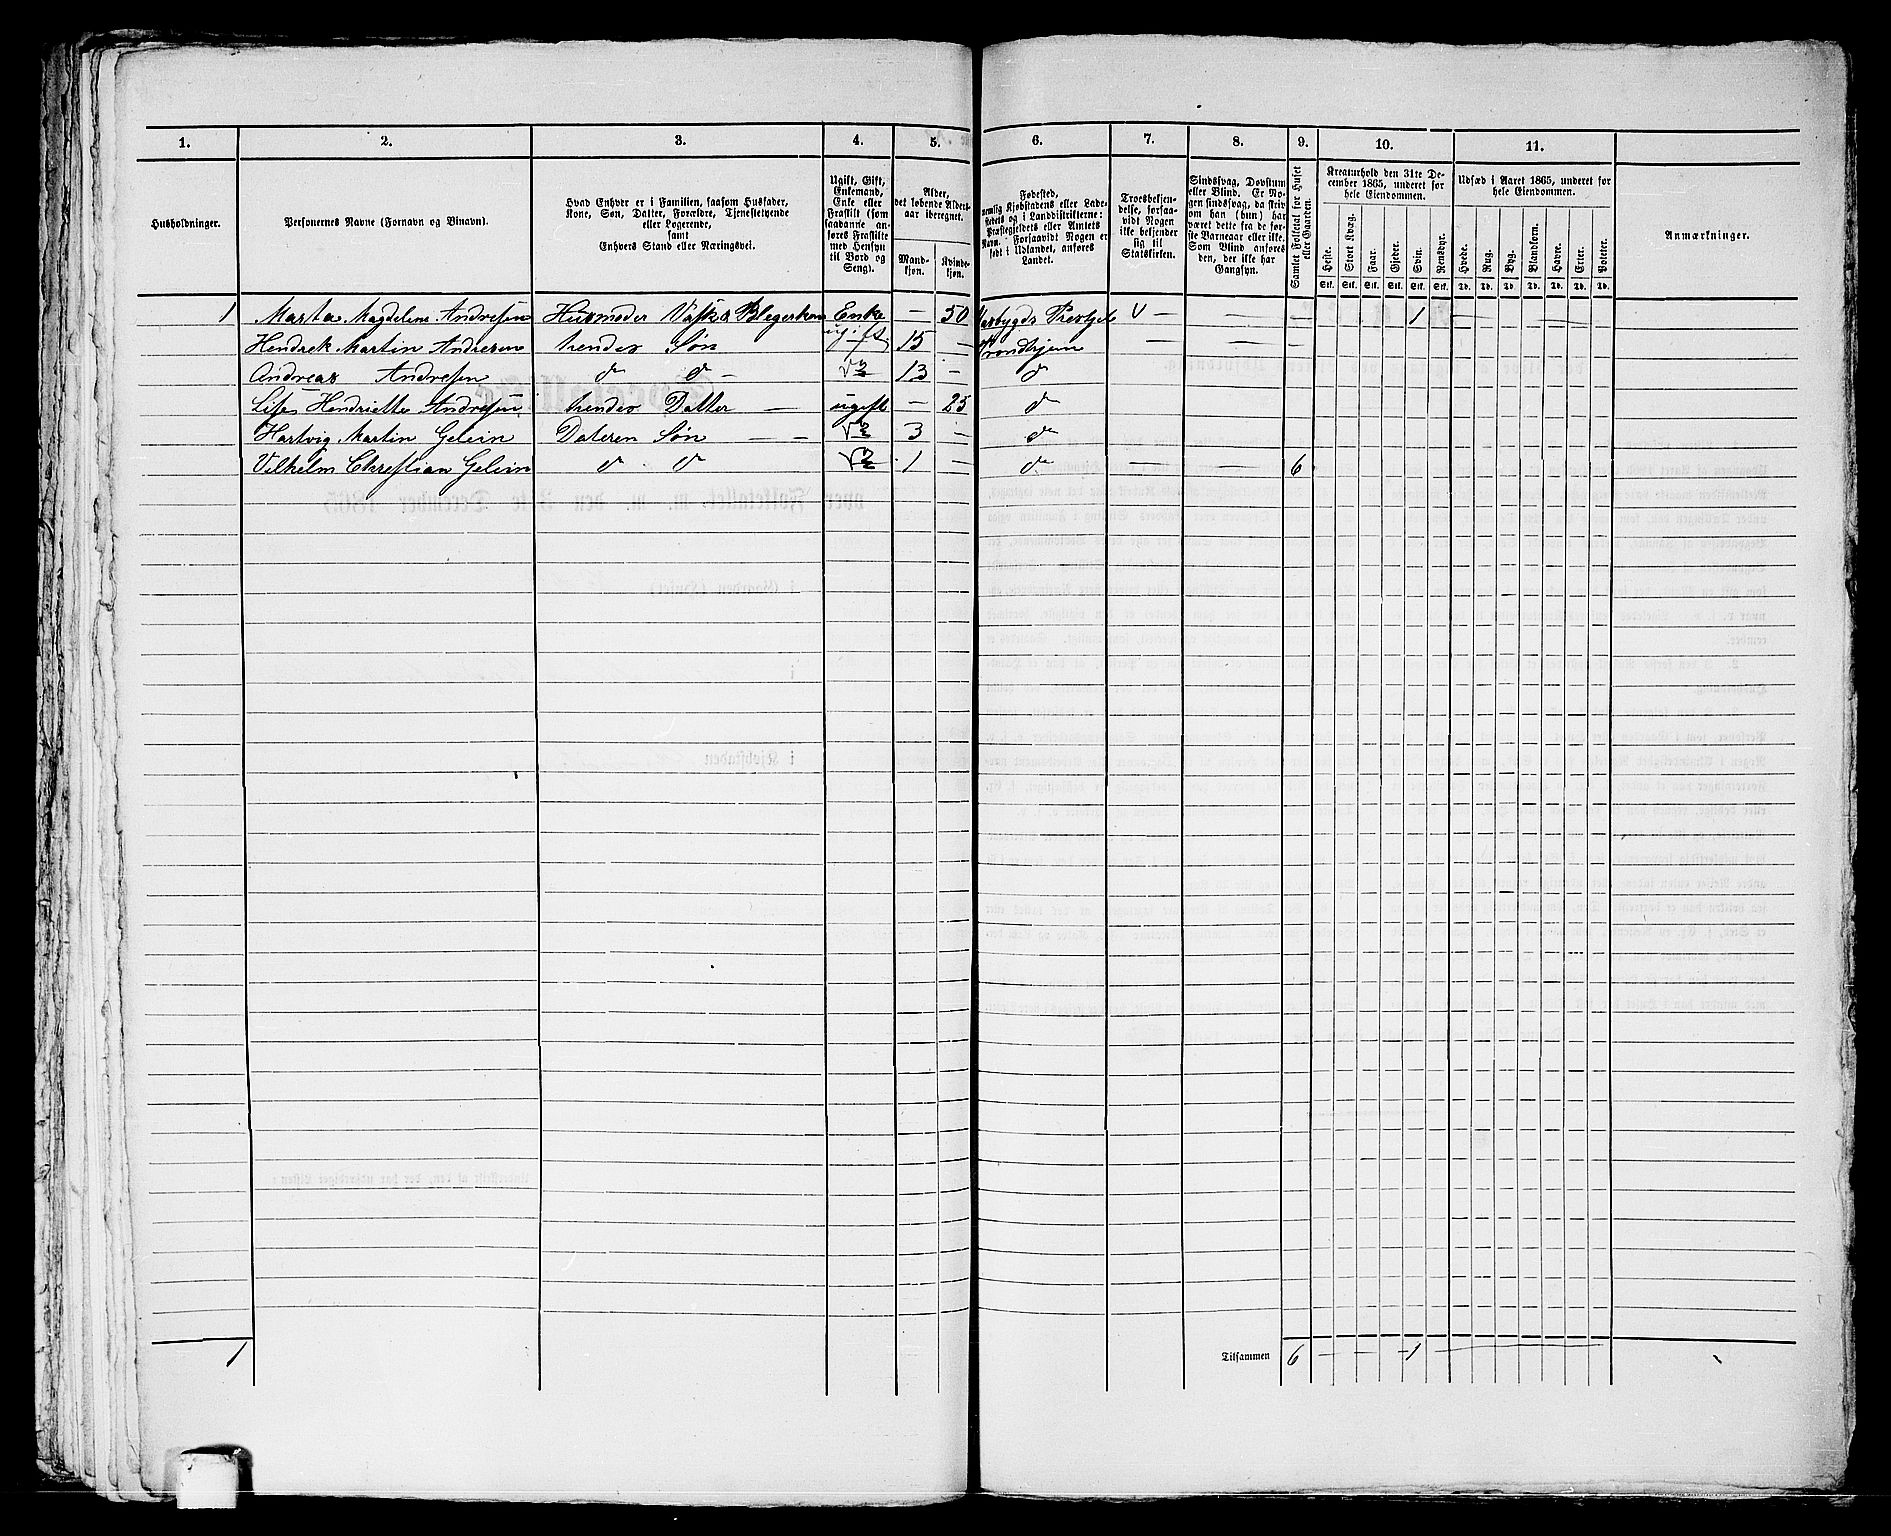 1. 2. 3. 4. 5. 6. 7. 8. 9. 10. 11.
Husholdninger.
Personernes Navne (Fornavn og Binavn).
Hvad Enhver er i Familien, saasom Husfader,
Kone, Søn, Datter, Forældre, Tjenestetyende
eller Logerende,
samt
Enhvers Stand eller Næringsvei.
Ugift, Gift,
Enkemand,
Enke eller
Fraskilt (som
saadanne an-
føres Fraskilte
med Hensyn
til Bord og
Seng).
Alder,
det løbende Alders-
aar iberegnet.
Mand-
kjøn.
Kvinde-
kjøn.
Fødested,
nemlig Kjøbstadens eller Lade-
stedets og i Landdistrikterne:
Præstegjeldets eller Amtets
Navn. Forsaavidt Nogen er
født i Udlandet, anføres
Landet.
Troesbekjen-
delse, forsaa-
vidt Nogen
ikke bekjender
sig til
Statskirken.
Sindssvag, Døvstum
eller Blind. Er No-
gen sindssvag, da skriv
om han (hun) har
været dette fra de før-
ste Barneaar eller ikke.
Som Blind anføres
den, der ikke har
Gangsyn.
Samlet Folketal for Huset
eller Gaarden.
Kreaturhold den 31te De-
cember 1865, underet for
hele Eiendommen.
Heste. Stort Kvæg. Faar. Gjeder. Svin. Rensdyr.
Stk. Stk. Stk. Stk. Stk. Stk.
Udsæd i Aaret 1865, underet for
hele Eiendommen.
Hvede. Rug. Byg. Blandkorn. Havre. Erter. Poteter.
Td. Td. Td. Td. Td. Td. Td.
Anmærkninger.
1 Marta Magdelene Andresen Husmoder Enke — 50 — 1 —
Hendrek Martin Andresen hendes Søn ugift 15 — Trondhjem — —
Andreas Andresen d d — 13 — d
Lise Henriette Andresen hendes Datter — ugift — 25 d
Hartvig Martin Gelein Dateren Søn — — 3 — d
Vilhelm Chrestian Gelein d d 1 — d — — 6
1 Tilsammen 6 — — — 1 —